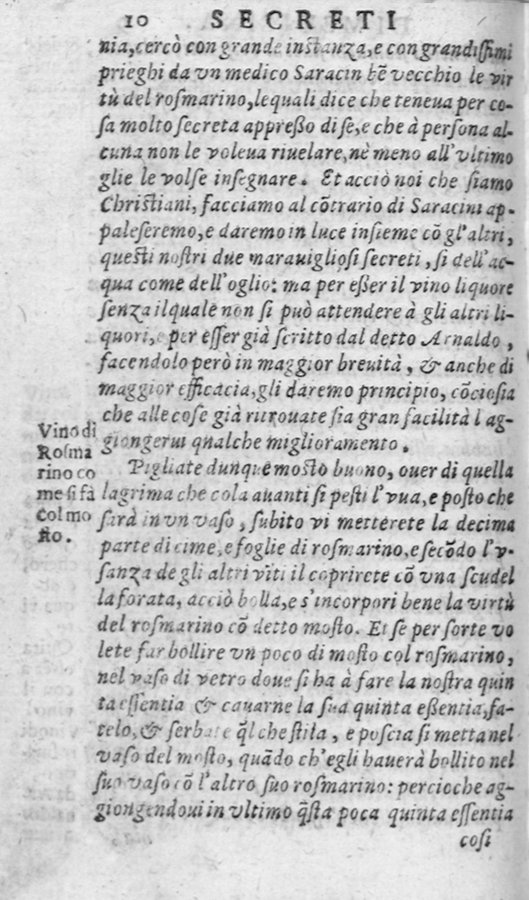 10 SECRETI
nia, cercò con grande inſtanza, e con grandiſſimi
prieghi da vn medico Saracin bẽ vecchio le vir
tù del roſmarino, le quali dice che teneua per co-
ſa molto ſecreta appreßo di ſe, e che à perſona al-
cuna non le voleua riuelare, nè meno all'vltimo
glie le volſe inſegnare. Et acciò noi che ſiamo
Chriſtiani, facciamo al cõtrario di Saracini ap-
paleſeremo, e daremo in luce inſieme cõ gl'altri,
queſti noſtri due marauiglioſi ſecreti, ſi dell'ac-
qua come dell'oglio: ma per eßer il vino liquore
ſenza il quale non ſi può attendere à gli altri li-
quori, e per eſſer già ſcritto dal detto Arnaldo,
facendolo però in maggior breuità, & anche di
maggior efficacia, gli daremo principio, cõcioſia
che alle coſe già ritrouate ſia gran facilità l'ag-
giongerui qualche miglioramento.
Vino di
Roſma
rino co
me ſi fà
col mo
ſto.
Pigliate dunque moſto buono, ouer di quella
lagrima che cola auanti ſi peſti l'vua, e poſto che
ſarà in vn vaſo, ſubito vi metterete la decima
parte di cime, e foglie di roſmarino, e ſecõdo l'v-
ſanza de gli altri viti il coprirete cõ vna ſcudel
la forata, acciò bolla, e s'incorpori bene la virtù
del roſmarino cõ detto moſto. Et ſe per ſorte vo
lete far bollire vn poco di moſto col roſmarino,
nel vaſo di vetro doue ſi ha à fare la noſtra quin
ta eſſentia & cauarne la ſua quinta eßentia, fa-
telo, & ſerbate q̃l che ſtila, e poſcia ſi metta nel
vaſo del moſto, quãdo ch'egli hauerà bollito nel
ſuo vaſo cõ l'altro ſuo roſmarino: percioche ag-
giongendoui in vltimo q̃ſta poca quinta eſſentia
coſi